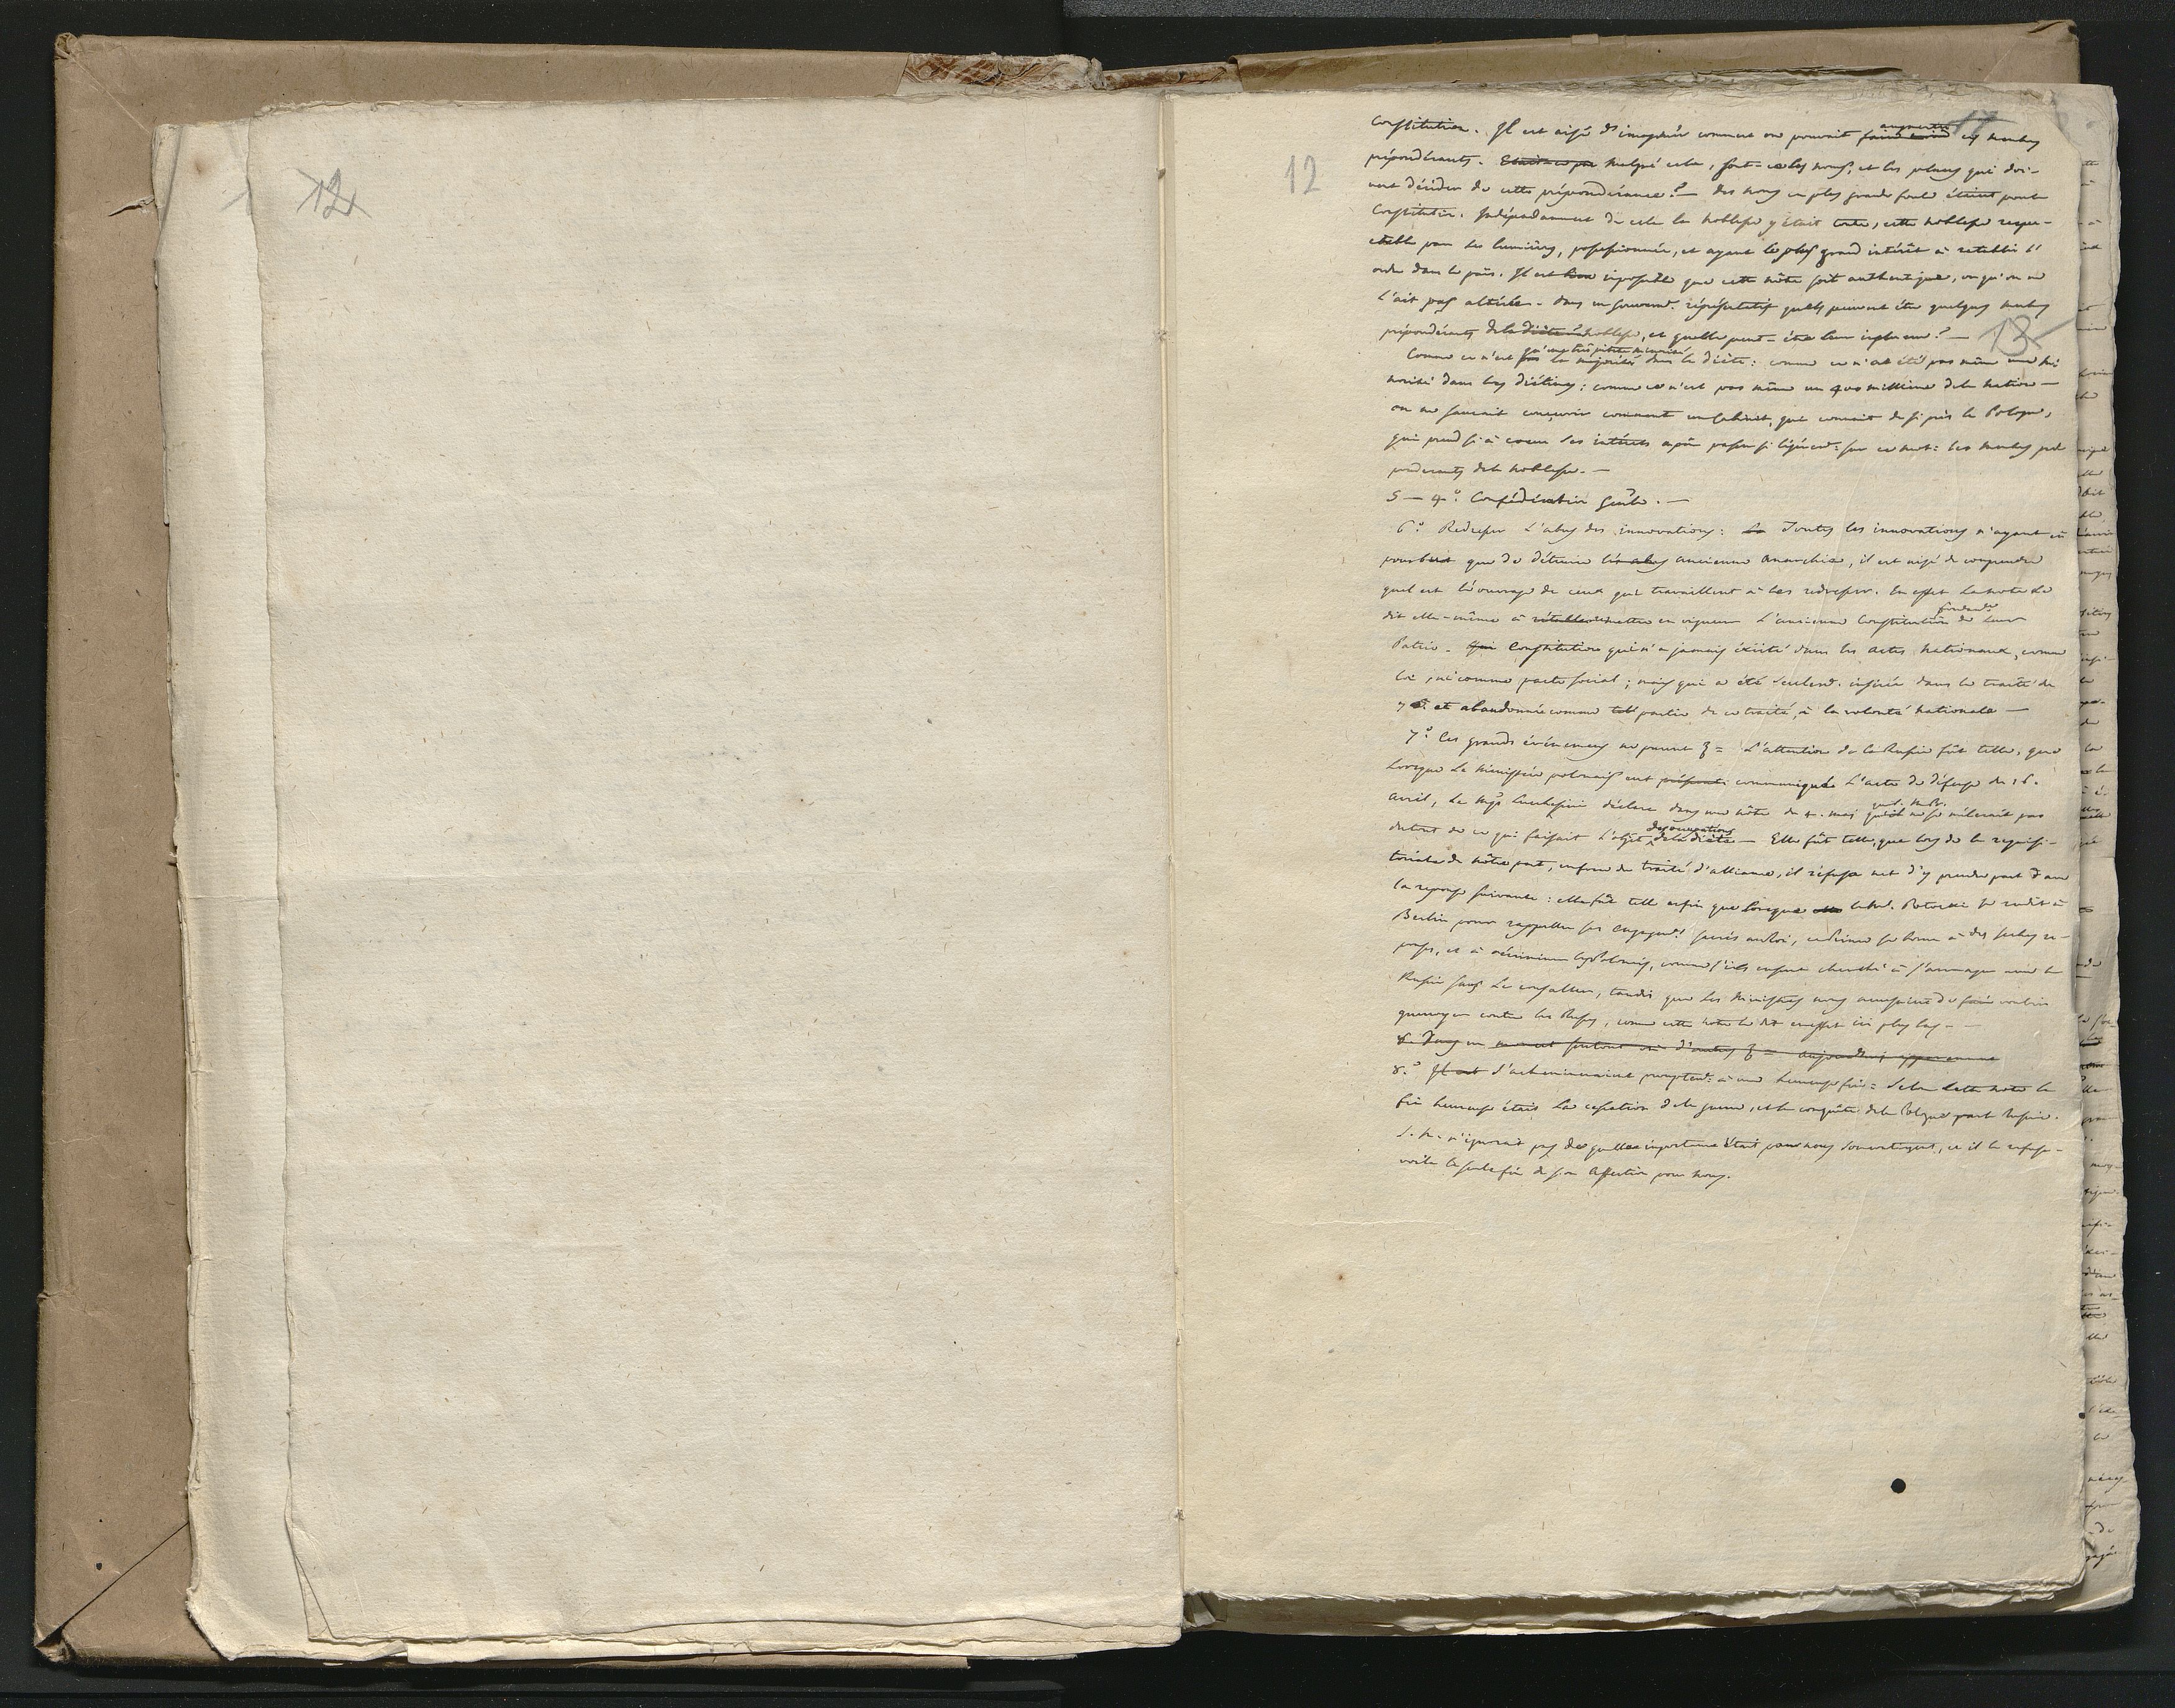 12
12
17
Constitution. Il est aisé d'imaginer comment on pouvait augmenter ces membres
prépondérants. Malgré cela, sont-ce les noms, et les places qui doi-
vent décider de cette prépondérance? — des noms en plus grande foule étaient pour la
Constitution. Indépendamment de cela la noblesse y était toute, cette noblesse respe-
ctable par ses lumières, possessionnée, et ayant le plus grand intérêt à rétablir l'
ordre dans le païs. Il est impossible que cette nôte soit authentique, ou qu'on ne
l'ait pas altérée. dans un gouvernt. représentatif quels peuvent être quelques membres
prépondérants de la noblesse, et quelle peut-être leur influence? —
13
Comme ce n'est qu'une très petite minorité dans la diète: comme ce n'a été pas même une mi-
norité dans les diétines: comme ce n'est pas même un 400 millième de la nation —
on ne saurait concevoir comment un cabinet, qui connait de si près la Pologne,
qui prend si à coeur ses intérêts a pû passer si légèremt. sur ce mot: les membres pré
pondérants de la noblesse. —
5 — 4.° Confédération Génle. —
6.° Redresser l'abus des innovations: Toutes les innovations n'ayant eû
pour but que de détruire ancienne anarchie, il est aisé de comprendre
quel est l'ouvrage de ceux qui travaillent à les redresser. En effet la note le
dit elle-même à remettre en vigueur l'ancienne Constitution de leur
Patrie. Constitution qui n'a jamais éxisté dans les actes nationaux, comme
loi, ni comme pacte social; mais qui a été seulemt. insérée dans le traité de
et abandonnée comme partie de ce traité, à la volonté nationale —
7.° Ces grands événemens ne purent = L'attention de la Russie fût telle, que
lorsque le ministère polonais eut communiqué l'acte de défense du 16.
avril, le Mqs Lucchesini déclara dans une nôte du 4. mai qu'il ne se mêlerait pas
du tout de ce qui faisait l'objet des occupations de la diète — Elle fût telle, que lors de la réquisi-
toriale de nôtre part, en force du traité d'alliance, il refusa net d'y prendre part dans
la reponse suivante: elle fut telle enfin que lorsque le Md. Potocki se rendit à
Berlin pour rappeller ses engagemts. sacrés au Roi, ce dernier se borna à des seches ré-
ponses, et à récriminer les Polonais, comme s'ils eussent cherché à s'arranger avec la
Russie sans le consulter, tandis que ses ministres nous accusaient de vouloir
guerroyer contre les Russes, comme cette note le dit en effet ici plus bas. —
8.° d'acheminerait promptemt. à une heureuse fin = Selon cette note la
fin heureuse était la cessation de la guerre, et la conquête de la Pologne par la Russie.
S. M. n'ignorait pas de quelle importance était pour nous son contingent, et il le refuse —
voilà la seule fin de son affection pour nous.